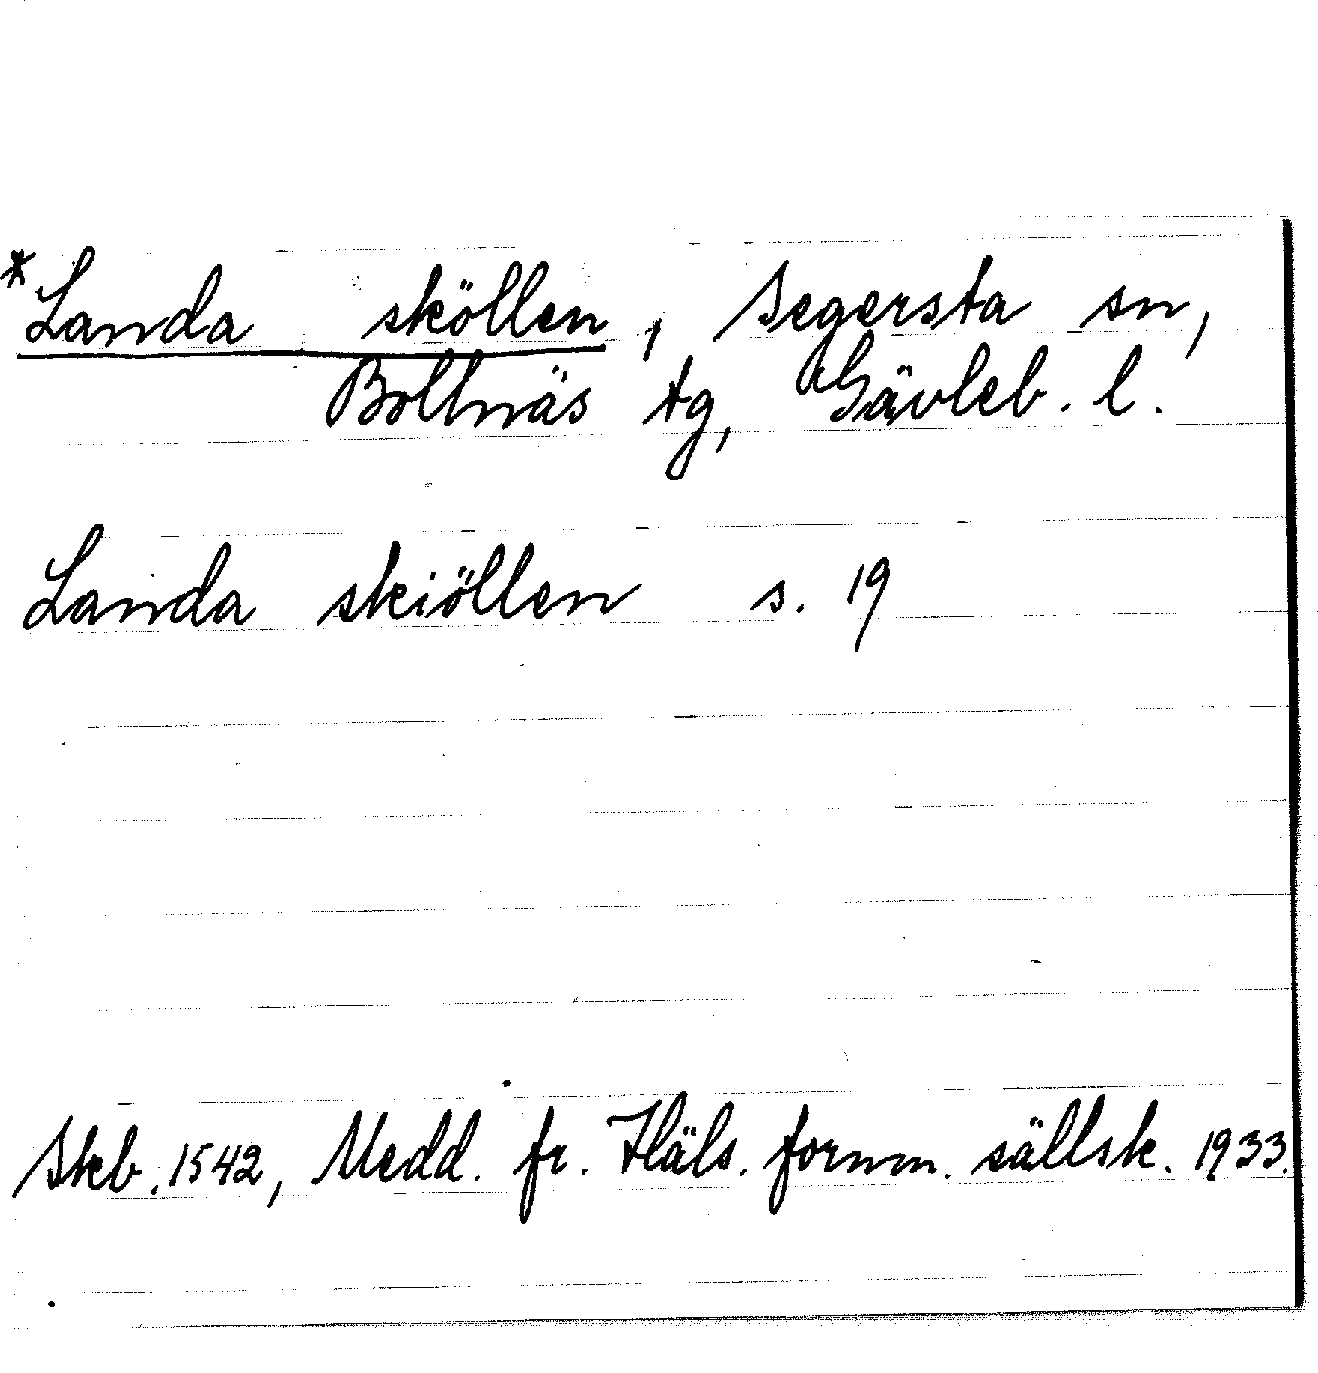 *Landa sköllen, Segersta sn,
Bollnäs tg, Gävleb. l.
Landa skiöllen s. 19
Skb. 1542, Medd. fr. Häls. fornm. sällsk. 1933.